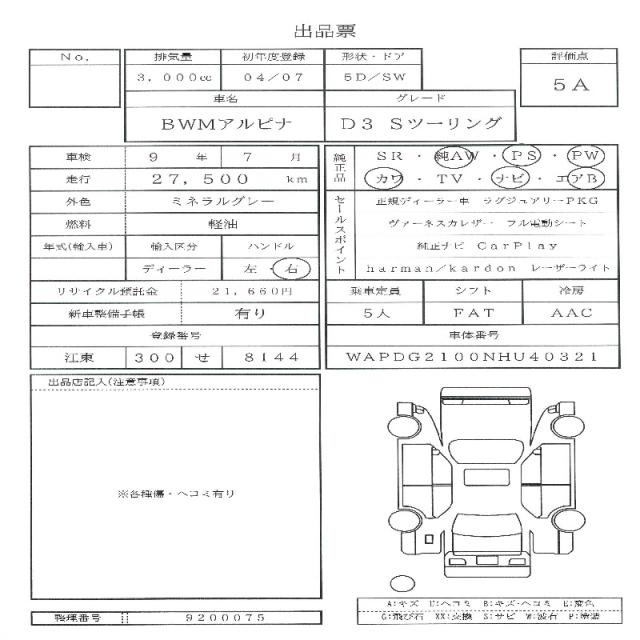 出品票
No.
排気量 初年度登録 形状・ドア
3,000cc 04/07 5D/SW
車名 グレード
BWMアルピナ D3 Sツーリング
評価点
5A
車検 9 年 7 月
走行 27,500 km
外色 ミネラルグレー
燃料 軽油
年式(輸入車) 輸入区分 ハンドル
ディーラー 左・右
リサイクル預託金 21,660円
新車整備手帳 有り
登録番号
江東 300 せ 8144
純正品
SR・純AW・PS・PW
カワ・TV・ナビ・エアB
セールスポイント
正規ディーラー車 ラグジュアリーPKG
ヴァーネスカレザー フル電動シート
純正ナビ CarPlay
harman/kardon レーザーライト
乗車定員 シフト 冷房
5人 FAT AAC
車体番号
WAPDG2100NHU40321
出品店記入(注意事項)
※各種傷・ヘコミ有り
整理番号 9200075
A:キズ U:ヘコミ B:キズ・ヘコミ E:変色
G:飛び石 XX:交換 S:サビ W:波石 P:塗装